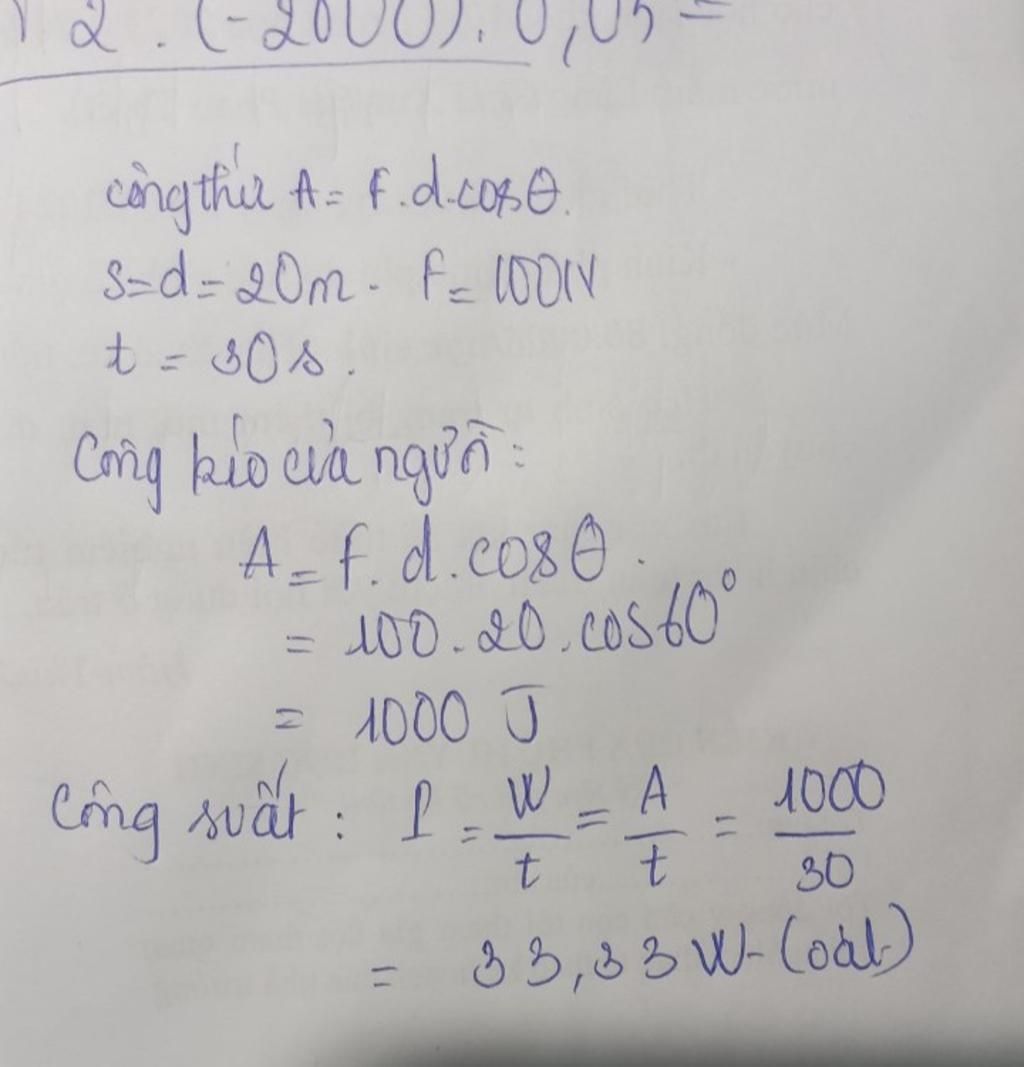 2 . (-2000) . 0,05 =
công thức A = F . d . cos θ.
s = d = 20m . F = 100N
t = 30s .
Công kéo của người :
A = F . d . cos θ .
= 100 . 20 . cos 60°
= 1000 J
Công suất : P = W/t = A/t = 1000/30
= 33,33 W - (oát)